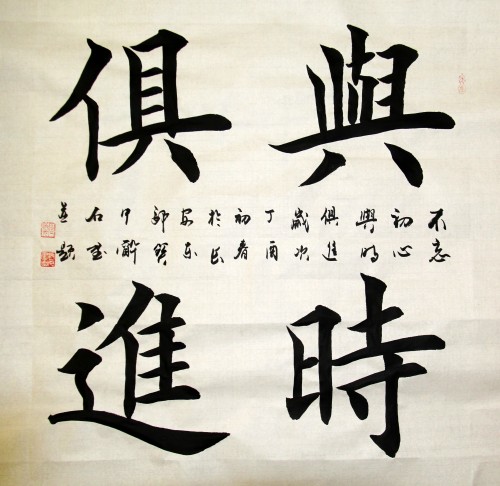 與時
俱進
不忘
初心
與時
俱進
歲次
丁酉
初春
於長
安東
郭
石
並題